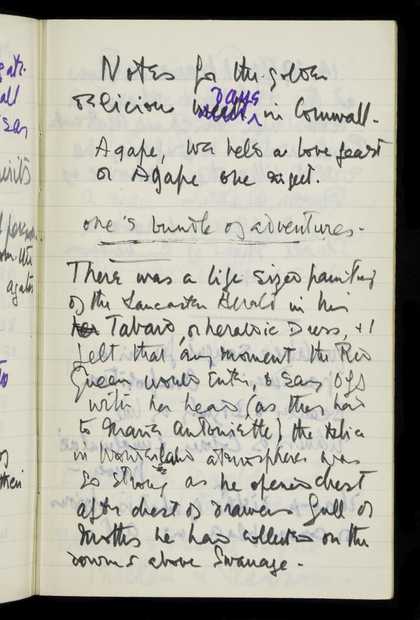 Notes for the golden
delicious days in Cornwall.
Agape, we held a love feast
or Agape one night.
one's bundle of adventures.
There was a life sized painting
of the Lancaster Herald in his
Tabard, or heraldic Dress, & I
felt that any moment the Red
Queen would Enter, & say Off
with her head, (as they had
to Marie Antoinette) the Alice
in Wonderland atmosphere was
so strong as he opened chest
after chest of drawers full of
Moths he had collected on the
downs above Swanage.